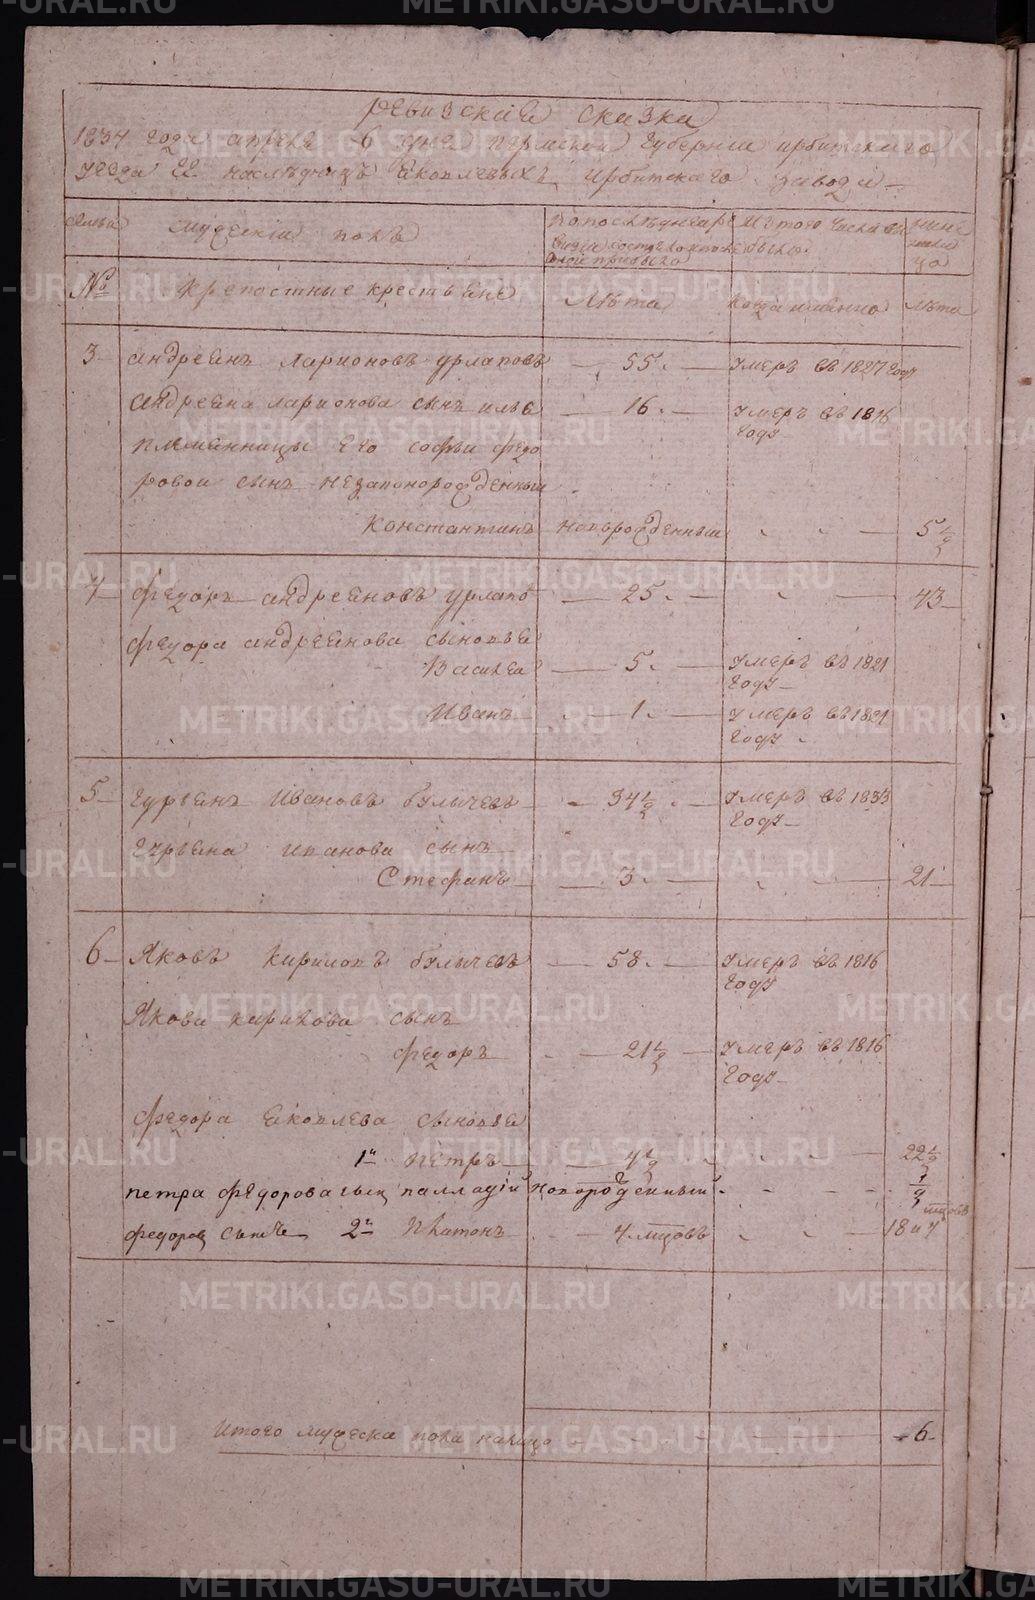 Ревизская сказка
1834 года апреля 6 дня пермской Губернии ирбитскаго
уезда Гг. наслѣдницъ Яковлевыхъ Ирбитскаго завода
семьи мужескій полъ По последней ре Изъ того числа вы нынѣ
визіи состояло и посл были на ли
оной прибыло цо
№ крепостные крестьяне Лѣта когда именно лѣта
3 андреянъ ларионовъ урлаповъ 55. умеръ въ 1827 году
андреяна ларионова сынъ илья 16. умеръ въ 1816
году
племянницы его софьи федо
ровой сынъ незаконорожденный
Константинъ новорожденный 5 1/2
4 федоръ андреяновъ урлапо 25. 43
федора андреянова сыновья
Василей 5. умеръ въ 1821
году
Иванъ 1. умеръ въ 1821
году
5 гурьянъ Ивановъ булычевъ 34 1/2 умеръ въ 1833
году
гурьяна иванова сынъ
Стефанъ 3. 21
6 Яковъ кириловъ булычевъ 58. умеръ въ 1816
году
Якова кирилова сынъ
федоръ 21 1/2 умеръ въ 1816
году
федора яковлева сыновья
1й петръ 4 1/2 22 1/2
петра федорова сынъ палладій новорожденный 1/2
федоров 2й Платонъ 4 мцовъ 18 и 4 мцовъ
Итого мужеска пола налицо 6
METRIKI.GASO-URAL.RU